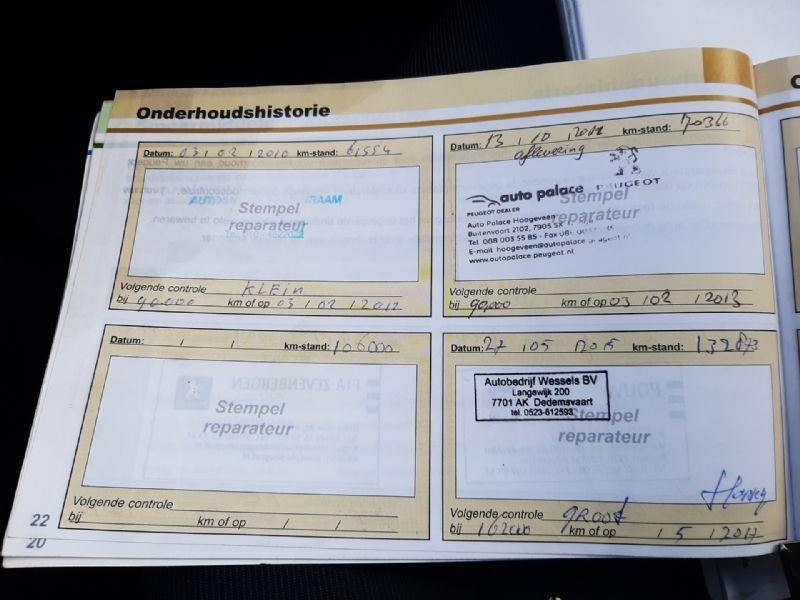 Onderhoudshistorie
Datum: 03 / 02 / 2010 km-stand: 61554
Stempel
reparateur
Volgende controle KLEin
bij 90.000 km of op 03 / 02 / 2012
Datum: 13 / 10 / 2012 km-stand: 70366
aflevering
auto palace PEUGEOT
PEUGEOT DEALER
Stempel
reparateur
Auto Palace Hoogeveen
Buitenvaart 2102, 7905 SX
Tel 088 003 55 85 - Fax 088
E-mail hoogeveen@autopalace
www.autopalace.peugeot.nl
Volgende controle
bij 90,000 km of op 03 / 02 / 2013
Datum: / / km-stand: 106000
Stempel
reparateur
Volgende controle
bij km of op / /
Datum: 27 / 05 / 2015 km-stand:
Autobedrijf Wessels BV
Langewijk 200
7701 AK Dedemsvaart
tel. 0523-612593
Stempel
reparateur
Volgende controle GROOT
bij 162000 km of op / 5 / 2017
22
20